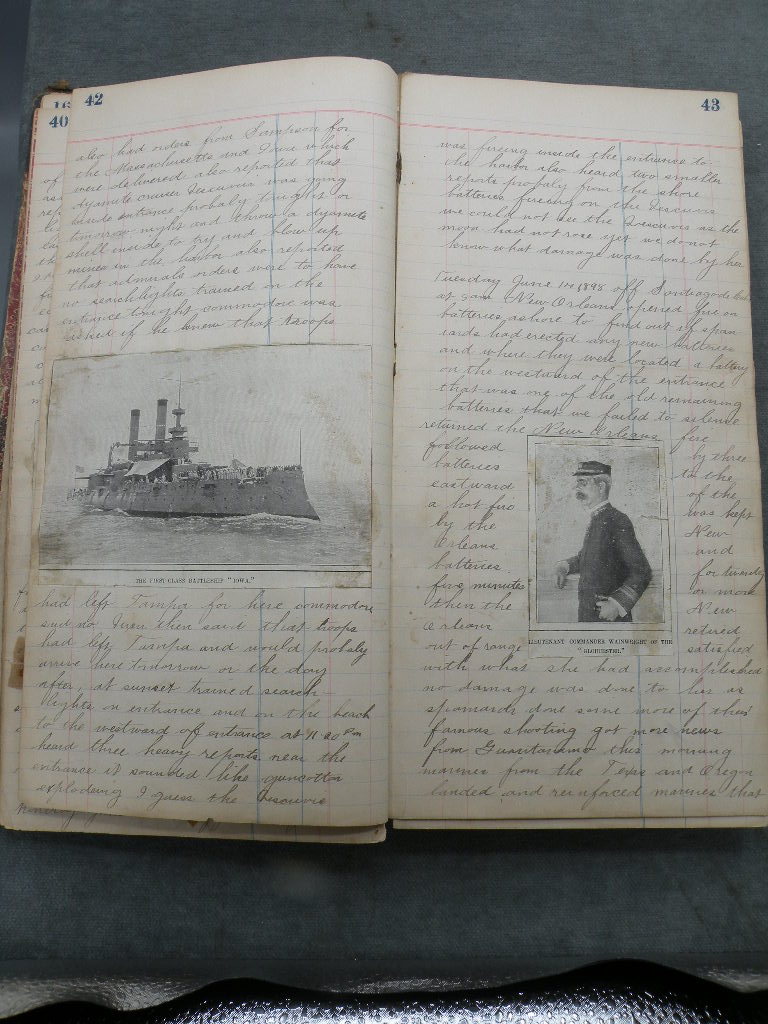 42
also had orders from Sampson for
the Massachusetts and Iowa which
were delivered also reported that
dynamite cruiser Vesuvius was going
inside entrance probaly tonight or
tomorrow night and throw a dynamite
shell inside to try and blow up
mines in the harbor also reported
that admirals orders were to have
no searchlights trained in the
entrance tonight commodore was
asked if he knew that troops
THE FIRST CLASS BATTLESHIP "IOWA."
had left Tampa for here commodore
said no Iowa then said that troops
had left Tampa and would probaly
arrive here tomorrow or the day
after, at sunset trained search
lights on entrance and on the beach
to the westward of entrance at 11 20 Pm
heard three heavy reports near the
entrance it sounded like guncotton
exploding I guess the Vesuvius
16
40
43
was fireing inside the entrance to
the harbor also heard two smaller
reports probaly from the shore
batteries fireing on the Vesuvius
we could not see the Vesuvius as the
moon had not rose yet we do not
know what damage was done by her
Tuesday June 14 1898 off Santiago de
at 5 am New Orleans opened fire on
batteries ashore to find out if span
iards had erected any new batteries
and where they were located a battery
on the westward of the entrance
that was one of the old remaining
batteries that we failed to silence
returned the New Orleans fire
followed by three
batteries to the
eastward of the
a hot fire was kept
by the New
Orleans and
batteries for twenty
five minutes or more
then the New
Orleans retired
out of range satisfied
LIEUTENANT COMMANDER WAINWRIGHT OF THE
"GLOUCESTER."
with what she had accomplished
no damage was done to her as
spaniards done some more of their
famous shooting got more news
from Guantanamo this morning
marines from the Texas and Oregon
landed and reinforced marines that